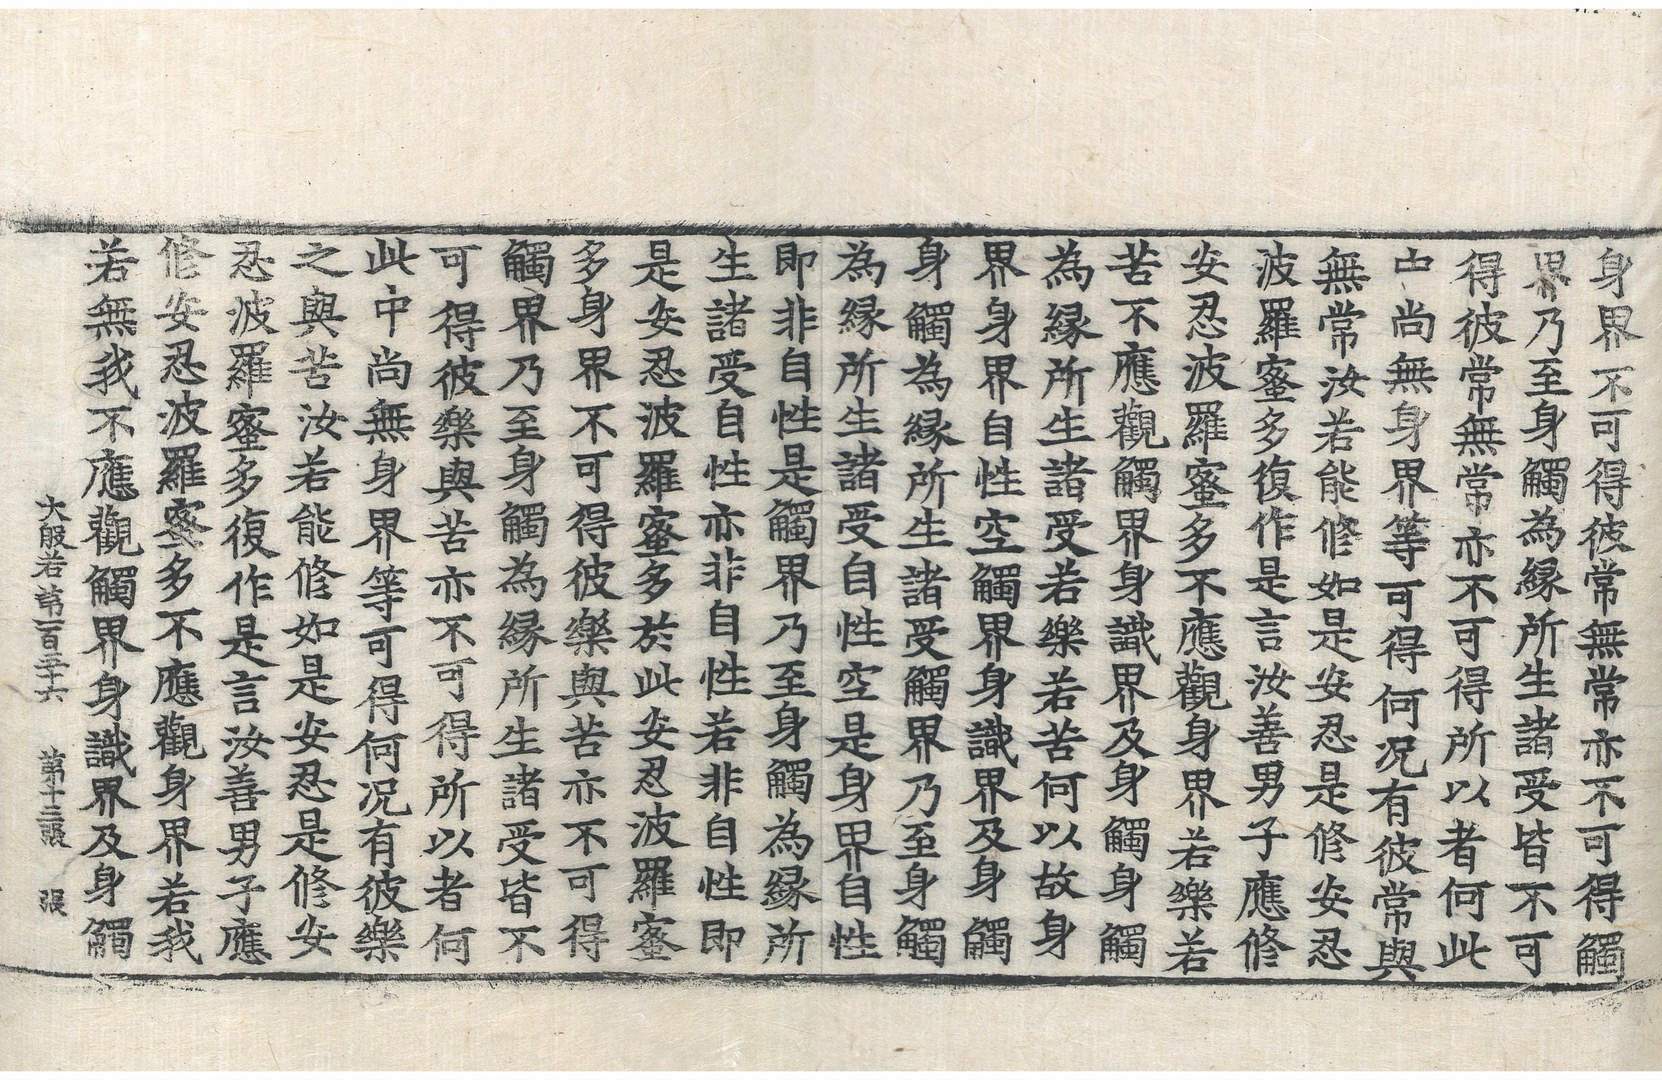 身界不可得彼常無常亦不可得觸
界乃至身觸為縁所生諸受皆不可
得彼常無常亦不可得所以者何此
中尚無身界等可得何况有彼常與
無常汝若能修如是安忍是修安忍
波羅蜜多復作是言汝善男子應修
安忍波羅蜜多不應觀身界若樂若
苦不應觀觸界身識界及身觸身觸
為縁所生諸受若樂若苦何以故身
界身界自性空觸界身識界及身觸
身觸為縁所生諸受觸界乃至身觸
為縁所生諸受自性空是身界自性
即非自性是觸界乃至身觸為縁所
生諸受自性亦非自性若非自性即
是安忍波羅蜜多於此安忍波羅蜜
多身界不可得彼樂與苦亦不可得
觸界乃至身觸為縁所生諸受皆不
可得彼樂與苦亦不可得所以者何
此中尚無身界等可得何况有彼樂
之與苦汝若能修如是安忍是修安
忍波羅蜜多復作是言汝善男子應
修安忍波羅蜜多不應觀身界若我
若無我不應觀觸界身識界及身觸
大般若第一百五十六 第十三張 張